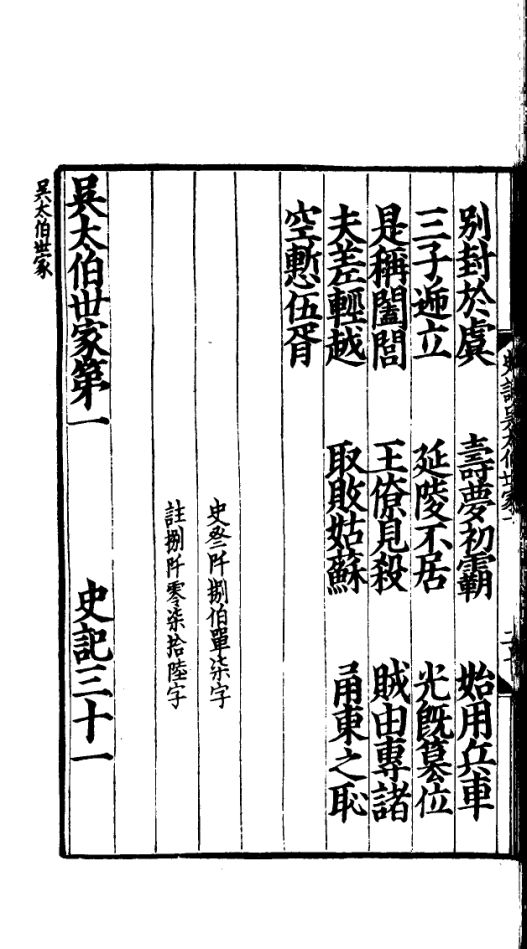 別封於虞 壽夢初霸 始用兵車
三子遞立 延陵不居 光旣篡位
是稱闔閭 王僚見殺 賊由專諸
夫差輕越 取敗姑蘇 甬東之恥
空慙伍胥
史叁阡捌伯單柒字
註捌阡零柒拾陸字
吴太伯世家第一 史記三十一
吴太伯世家